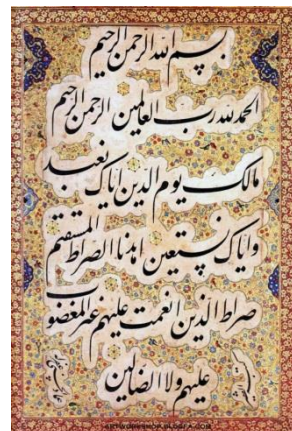 بسم الله الرحمن الرحیم
الحمد لله رب العالمین الرحمن الرحیم
مالک یوم الدین ایاک نعبد
وایاک نستعین اهدنا الصراط المستقیم
صراط الذین انعمت علیهم غیر المغضوب
علیهم ولا الضالین
ARTWORKSHOP.BLOGFA.COM